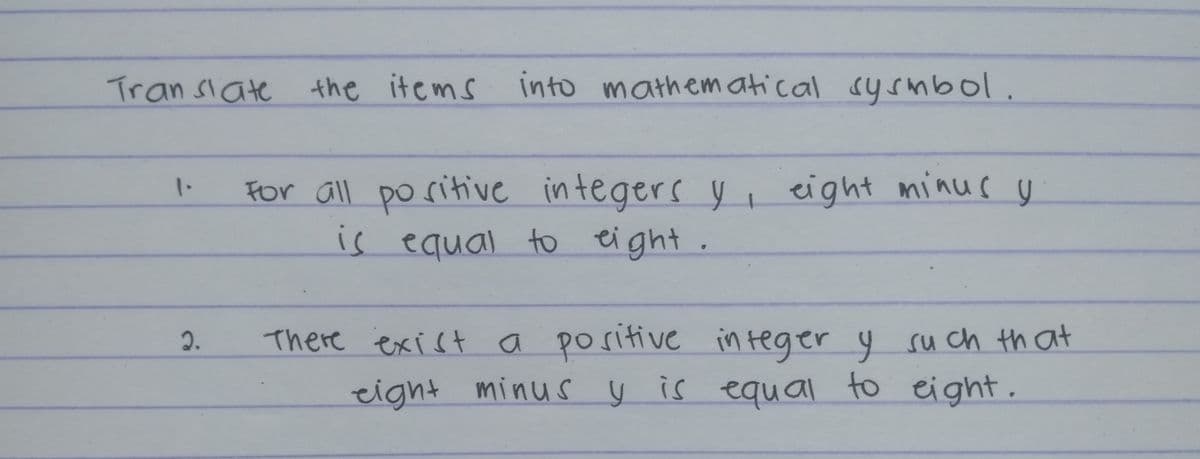 Translate the items into mathematical sysmbol.
1. For all positive integers y, eight minus y
is equal to eight.
2. There exist a positive integer y such that
eight minus y is equal to eight.